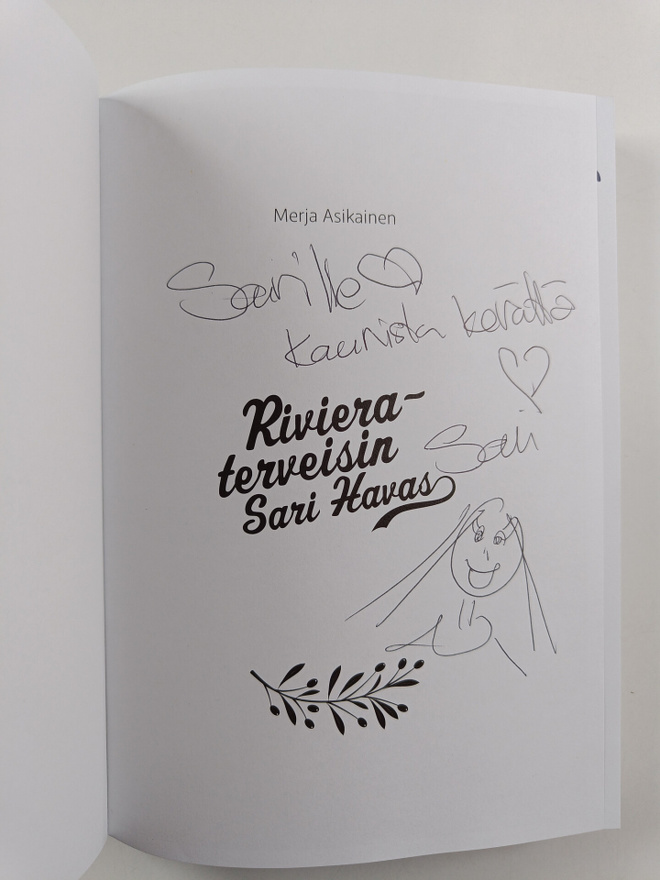 Merja Asikainen
Sarille
Kaunista kevättä
Riviera-
terveisin
Sari Havas
Sari